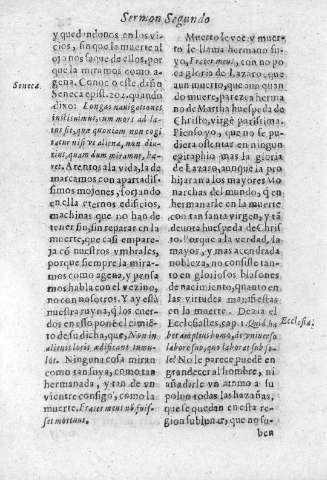 Sermon Segundo
y quedandonos en los vi-
cios, sin que la muerte al
ojo nos saque de ellos, por
que la miramos como a-
gena. Conoció este disin
Seneca epist. 202. quando
Seneca.
dixo: Longas navigationes
instituimus, cum mors ad la-
tus sit, que quoniam non cogi
tatur nisi ve aliena, non diu-
tius, quam dum miramur, hæ-
ret. Atentos a la vida, la de
marcamos con apartadis-
simos mojones, fojando
en ella eternos edificios,
machinas que no han de
tener fin, sin reparar en la
muerte, que casi empare-
ja cō nuestros vmbrales,
porque siempre la mira-
mos como agena, y pensa
mos habla con el vezino,
no con nosotros. Y ay està
nuestra ruyna, q̃ los cuer-
dos en esso ponē el cimiē-
to de su dicha, que, Non in
alienis loris ædificant tumu-
los. Ninguna cosa miran
como tan suya, como tan
hermanada, y tan de vn
vientre consigo, como la
muerte, Frater meus nō fuis-
set mortuus.
Muerto le voè, y muer-
to le llama hermano su-
yo, Frater meus, con no po
ca gloria de Lazaro, que
aun muerto, que aun quan
do muere, parezca herma
no de Martha huespeda de
Christo, virgē parissima.
Pienso yo, que no se pu-
diera ostentar en ningun
epigraphio mas la gloria
de Lazaro, aunque la pro
hijaran a los mayores Mo
narchas del mundo, q̃ en
hermanarle en la muerte
con tan santa virgen, y tā
deuota huespeda de Chris
to. Porque a la verdad, la
mayor, y mas acendrada
nobleza, no consiste tan-
to en gloriosos blasones
de nacimiento, quanto en
las virtudes manifiestas
en la muerte. Dezia el
Ecclesiastes, cap. 1. Quid ha
Ecclesiæ.
ber amplius homo, de vniverso
labore suo, quo laborat sub so-
le? No le parece puedē en
grandecer al hombre, ni
añadirle vn atomo a su
polvo todas las hazañas,
que se quedan en esta re-
gion sublunar, que no su-
ben